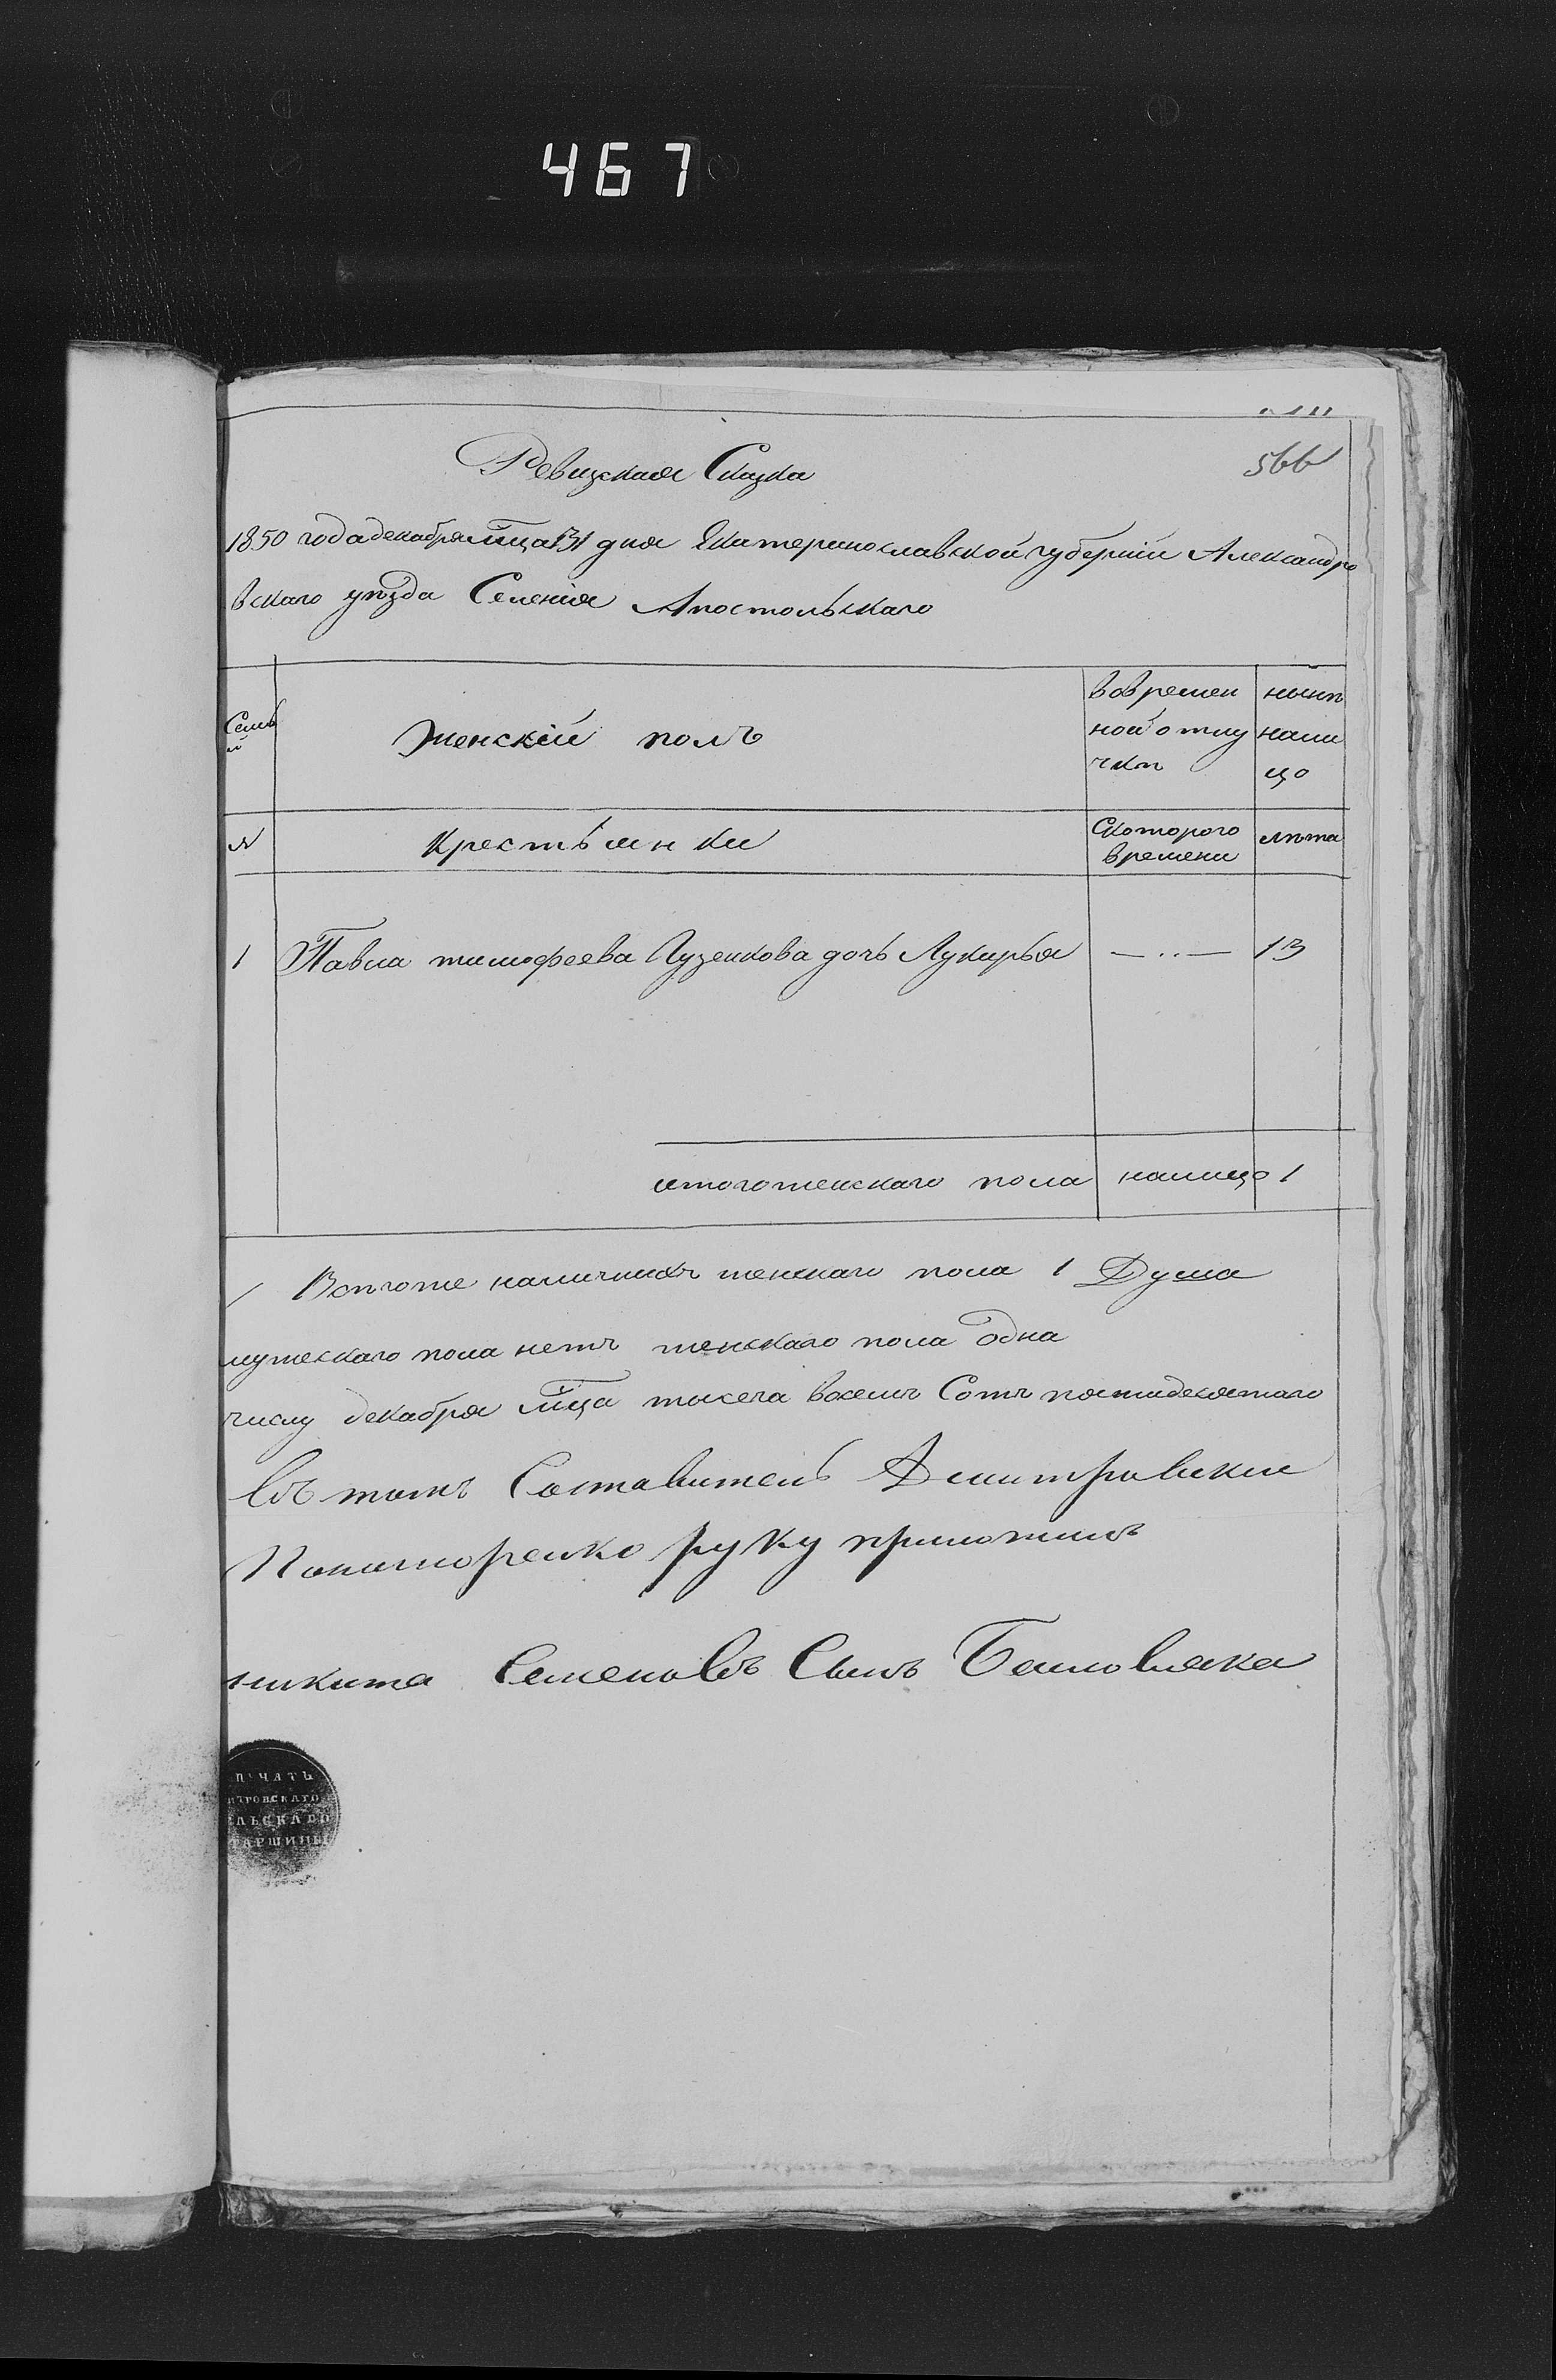 467
566
Ревизская Сказка
1850 года декабря мца 31 дня Екатеринославской губернии Александро
вскаго уезда Селенія Апостольскаго
Семьи
Женскій полъ
вовремен
ной отлу
чкѣ
нынѣ
нали
цо
№
Крестьянки
Скоторого
времени
лѣта
1 Павла тимофеева Пузенкова дочь Лукирья — .. — 13
итого женскаго пола налицо 1
Всѣго же наличнихъ женскаго пола 1 Душа
мужескаго пола нетъ женскаго пола одна
числу декабря мца тысеча восемъ Сотъ пятидесятаго
Въ томъ Составитель Дмитровски
Пономоренко руку приложилъ
никита Семеновъ Сынъ
ПЕЧАТЬ
ИТРОВСКАГО
ЕЛЬСКАГО
ТАРШИНЫ